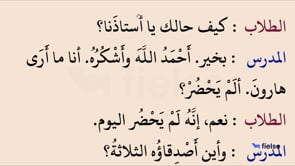 الطلاب : كيف حالك يا أُستاذَنا؟
المدرس : بخير. أَحْمَدُ اللَّهَ وَأَشْكُرُهُ. أنا ما أَرَى
هارونَ. أَلَمْ يَحْضُرْ؟
الطلاب : نعم، إنَّهُ لَمْ يَحْضُر اليوم.
المدرس : وأين أَصْدِقاؤُه الثلاثةُ؟
fielse